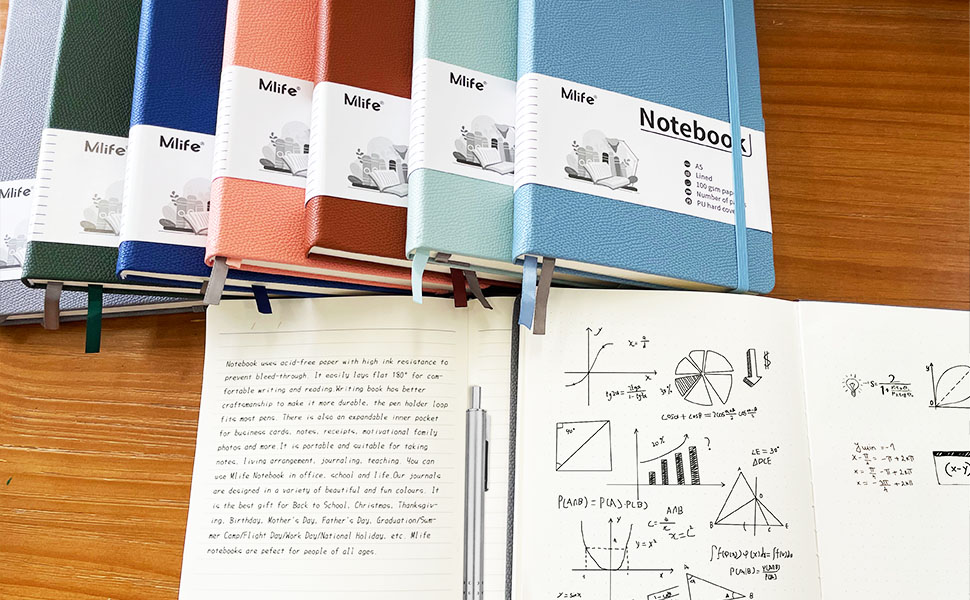 Mlife
Mlife
Mlife
Mlife
Mlife
Mlife
Mlife
Notebook
A5
Lined
100 gsm pape
Number of p
PU hard cove
Notebook uses acid-free paper with high ink resistance to
prevent bleed-through. It easily lays flat 180° for com-
fortable writing and reading.Writing book has better
craftsmanship to make it more durable, the pen holder loop
fits most pens. There is also an expandable inner pocket
for business cards, notes, receipts, motivational family
photos and more.It is portable and suitable for taking
notes, living arrangement, journaling, teaching. You can
use Mlife Notebook in office, school and life.Our journals
are designed in a variety of beautiful and fun colours. It
is the best gift for Back to School, Christmas, Thanksgiv-
ing, Birthday, Mother's Day, Father's Day, Graduation/Sum-
mer Camp/Flight Day/Work Day/National Holiday, etc. Mlife
notebooks are pefect for people of all ages.
y
x
30%
$
90°
20%
?
∠E = 30°
△DCE
P(A∩B) = P(A)·P(B)
A∩B
x=C²
y = x²
B
C
E
y = sinx